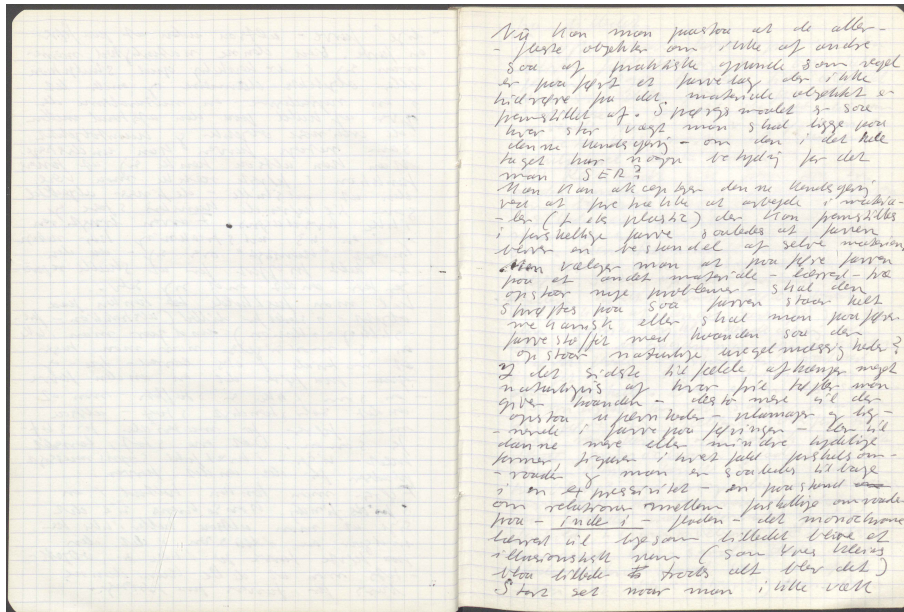 Nu kan man paastaa at de aller-
- fleste objekter om ikke af andre
saa af praktiske grunde som regel
er paaført et farvelag der ikke
hidrører fra det materiale objektet er
fremstillet af. Spørgsmaalet er saa
hvor stor vægt man skal ligge paa
denne kendsgerning - om den i det hele
taget har nogen betydning for det
man SER?
Man kan akceptere denne kendsgerning
ved at foretrække at arbejde i materia-
- ler (f. eks plastic) der kan fremstilles
i forskellige farve saaledes at farven
bliver en bestanddel af selve materialet
Men vælger man at paaføre farven
paa et andet materiale - lærred - træ
opstaar nye problemer - skal den
sprøjtes paa saa farven staar helt
mekanisk eller skal man paaføre
farvestoffet med haanden saa der
opstaar naturlige uregelmæssigheder?
I det sidste tilfælde afhænger meget
naturligvis af hvor frie tøjler man
giver haanden - desto mere vil der
opstaa ujevnheder - plamager og lig-
- nende i farvepaaføringen - der vil
danne mere eller mindre tydelige
former, figurer i hvert fald forskelsom-
- raader og man er saaledes tilbage
i en expressivitet - en paastand
om relationer mellem forskellige omraader
paa - inde i - fladen - det monochrome
lærred vil ligesom billedet blive et
illusionistisk rum (som Yves Kleins
blaa billeder trods alt blev det)
Stort set naar man ikke væk